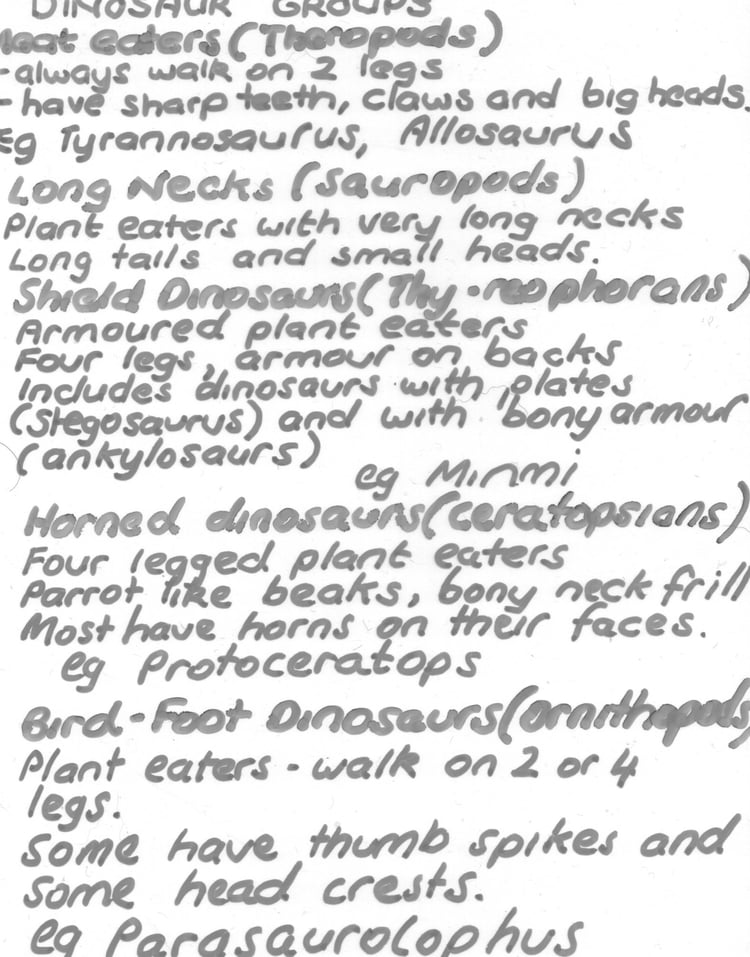 DINOSAUR GROUPS
Meat eaters (Theropods)
-always walk on 2 legs
- have sharp teeth, claws and big heads.
Eg Tyrannosaurus, Allosaurus
Long Necks (Sauropods)
Plant eaters with very long necks
Long tails and small heads.
Shield Dinosaurs (Thy-reophorans)
Armoured plant eaters
Four legs, armour on backs
Includes dinosaurs with plates
(Stegosaurus) and with bony armour
(ankylosaurs)
eg Minmi
Horned dinosaurs (ceratopsians)
Four legged plant eaters
Parrot like beaks, bony neck frill
Most have horns on their faces.
eg Protoceratops
Bird-Foot Dinosaurs (ornithopods)
Plant eaters - walk on 2 or 4
legs.
Some have thumb spikes and
some head crests.
eg Parasaurolophus